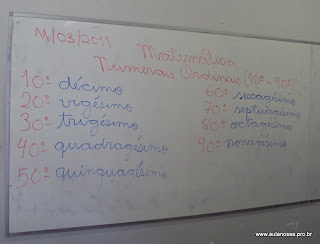 11/03/2011
Matemática
Numerais Ordinais (10º - 90º)
10º décimo
20º vigésimo
30º trigésimo
40º quadragésimo
50º quinquagésimo
60º sexagésimo
70º septuagésimo
80º octagésimo
90º nonagésimo
www.aulanossa.pro.br